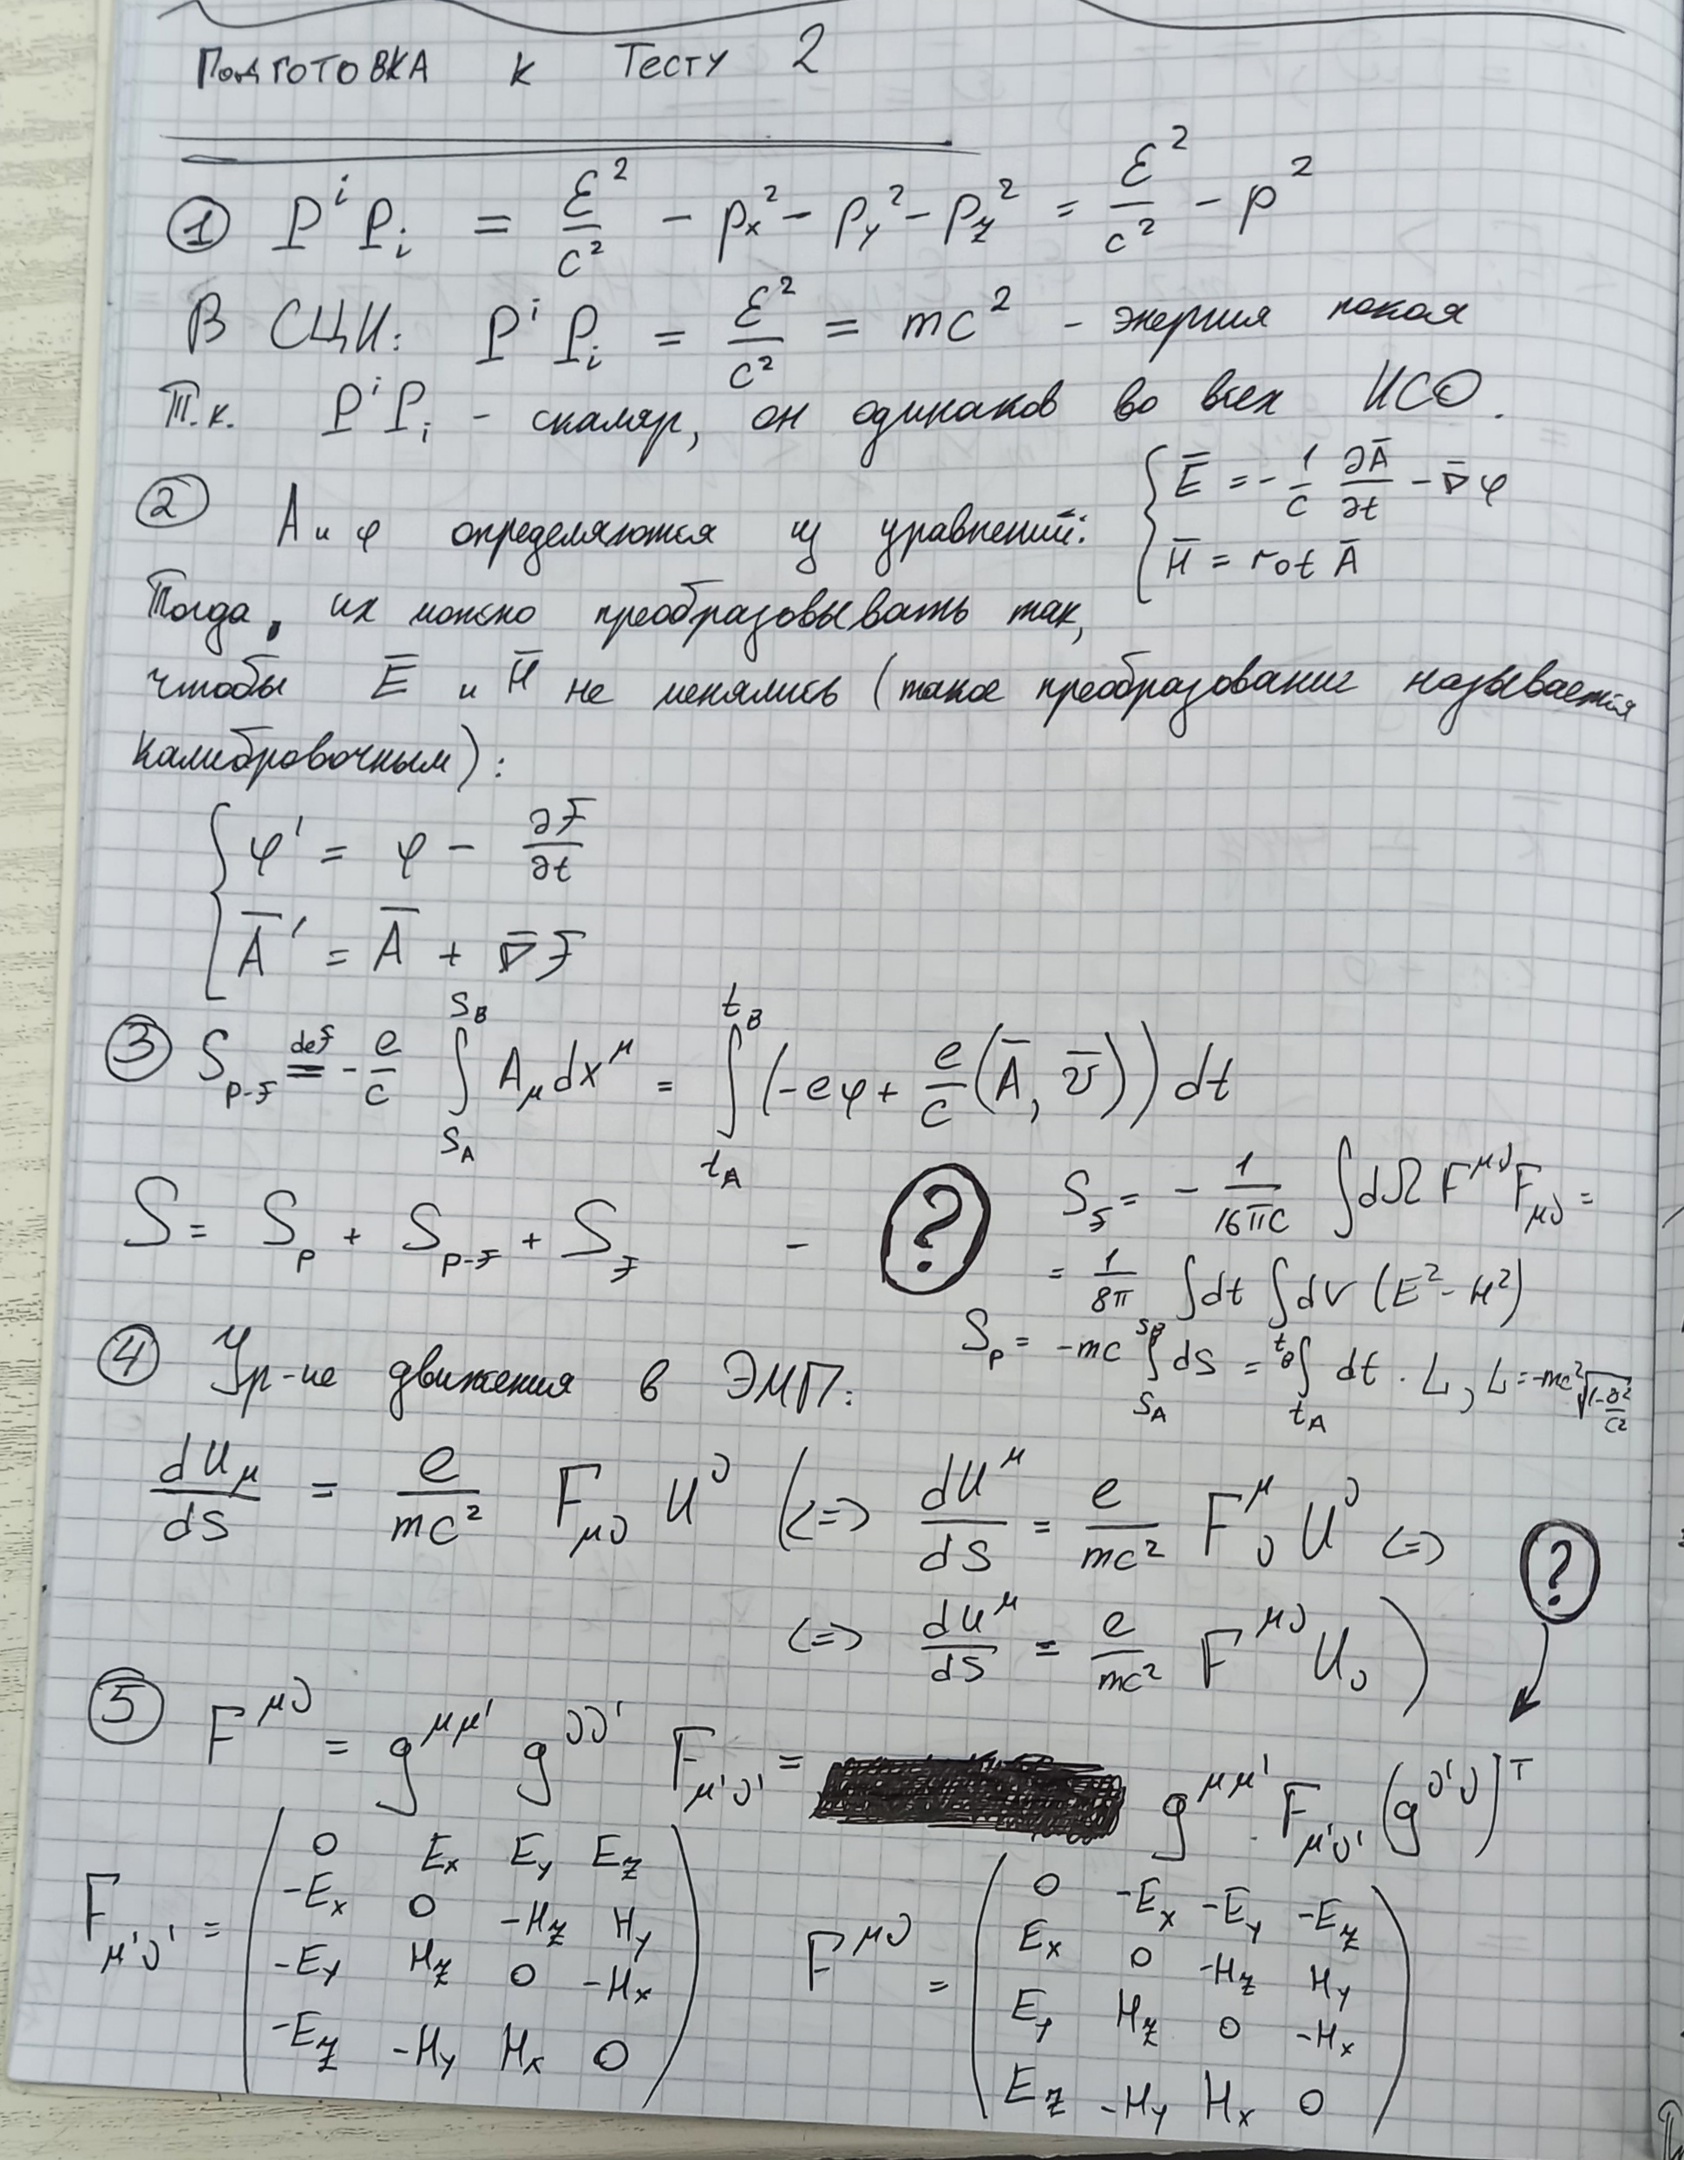 Подготовка к Тесту 2
① P^i P_i = ε²/c² - p_x² - p_y² - p_z² = ε²/c² - p²
В СЦИ: P^i P_i = ε²/c² = mc² - энергия покоя
Т.к. P^i P_i - скаляр, он одинаков во всех ИСО.
② A и φ определяются из уравнений: { E̅ = - 1/c ∂A̅/∂t - ∇̅φ
H̅ = rot A̅
Тогда, их можно преобразовывать так,
чтобы E̅ и H̅ не менялись (такое преобразование называется
калибровочным):
{ φ' = φ - ∂F/∂t
A̅' = A̅ + ∇̅F
③ S_{p-f} =^{def} - e/c ∫_{S_A}^{S_B} A_μ dx^μ = ∫_{t_A}^{t_B} (-eφ + e/c (A̅, v̅)) dt
S = S_p + S_{p-f} + S_f - ?
S_f = - 1/16πc ∫dΩ F^{μν} F_{μν} =
= 1/8π ∫dt ∫dV (E² - H²)
S_p = -mc ∫_{S_A}^{S_B} dS = ∫_{t_A}^{t_B} dt · L, L = -mc² √(1-v²/c²)
④ Ур-ие движения в ЭМП:
dU_μ/dS = e/mc² F_{μν} U^ν (<=> dU^μ/dS = e/mc² F^μ_ν U^ν <=> ?
<=> dU^μ/dS = e/mc² F^{μν} U_ν)
⑤ F^{μν} = g^{μμ'} g^{νν'} F_{μ'ν'} = g^{μμ'} · F_{μ'ν'} (g^{ν'ν})^T
F_{μ'ν'} = ( 0 E_x E_y E_z
-E_x 0 -H_z H_y
-E_y H_z 0 -H_x
-E_z -H_y H_x 0 )
F^{μν} = ( 0 -E_x -E_y -E_z
E_x 0 -H_z H_y
E_y H_z 0 -H_x
E_z -H_y H_x 0 )